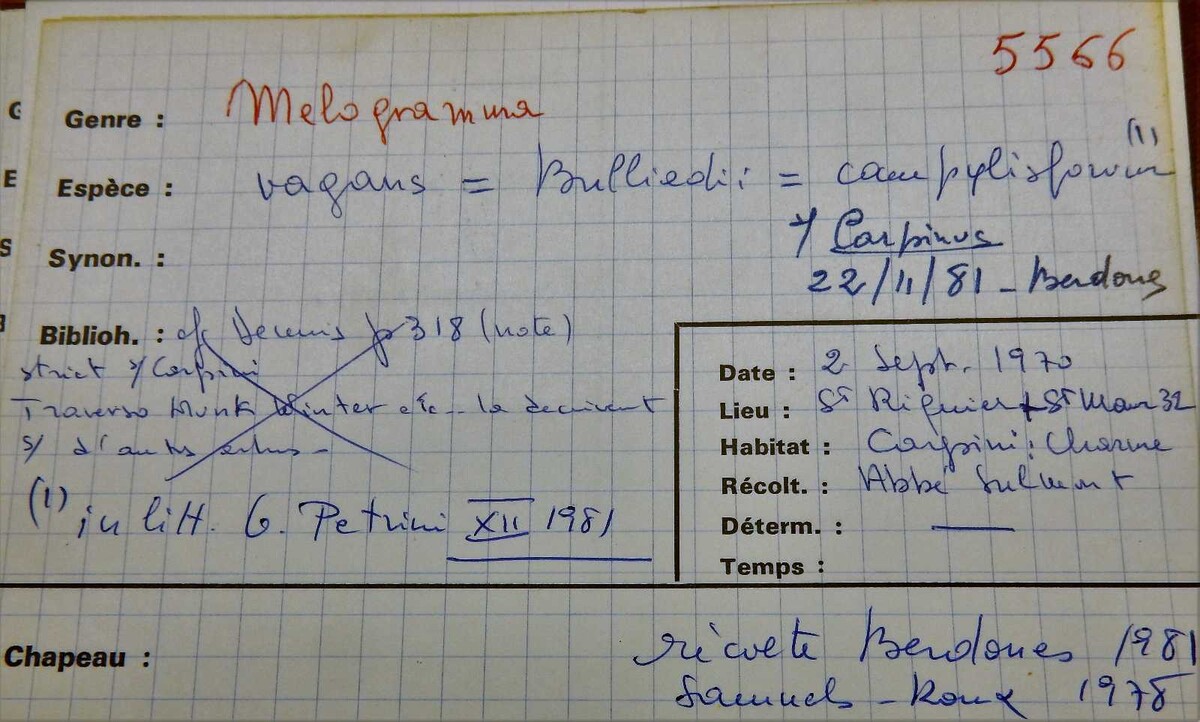 5566
Genre : Melogramma
(1)
Espèce : vagans = Bulliardii = campylosporum
s/ Carpinus
Synon. :
22/11/81 - Berdoues
Biblioh. : cfr Dennis p 318 (note)
strict s/ Carpini
Traverso Munk Winter etc.. la decrivent
s/ d'autres arbres -
(1) in litt. G. Petrini XII 1981
Date : 2 Sept. 1970
Lieu : St Riquier + St Maur 32
Habitat : Carpini : Charme
Récolt. : Abbé Sulmont
Déterm. : —
Temps :
Chapeau : récolte Berdoues 1981
Samuels - Roux 1978